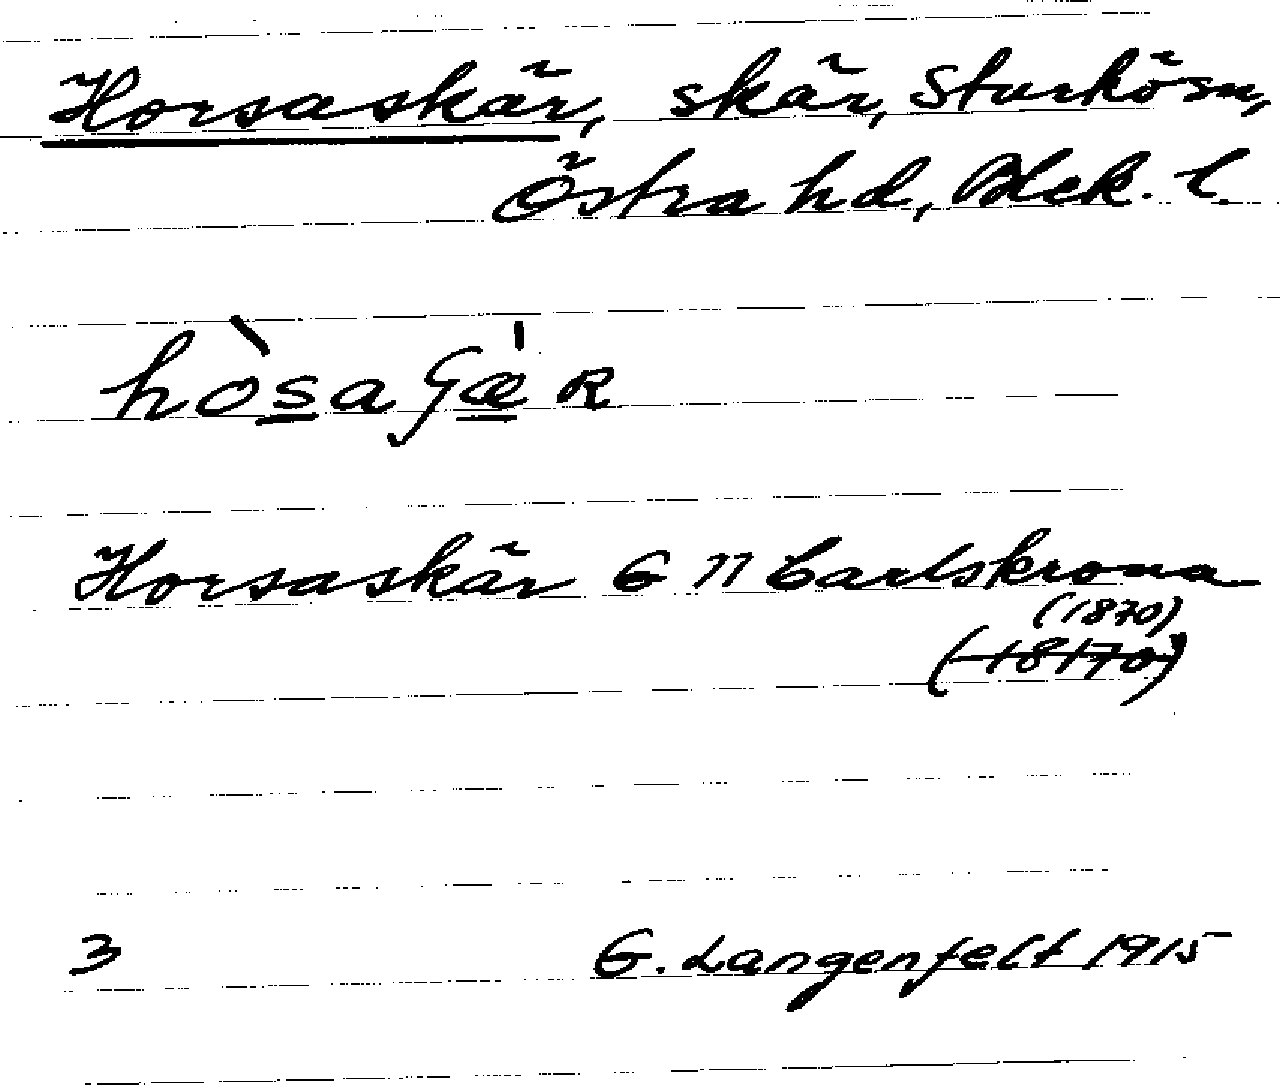 Horsaskär, skär, Sturkö sn,
Östra hd, Blek. l.
hòsaʃæ̀ʀ
Horsaskär G 11 Carlskrona
(1870)
(18170)
3 G. Langenfelt 1915